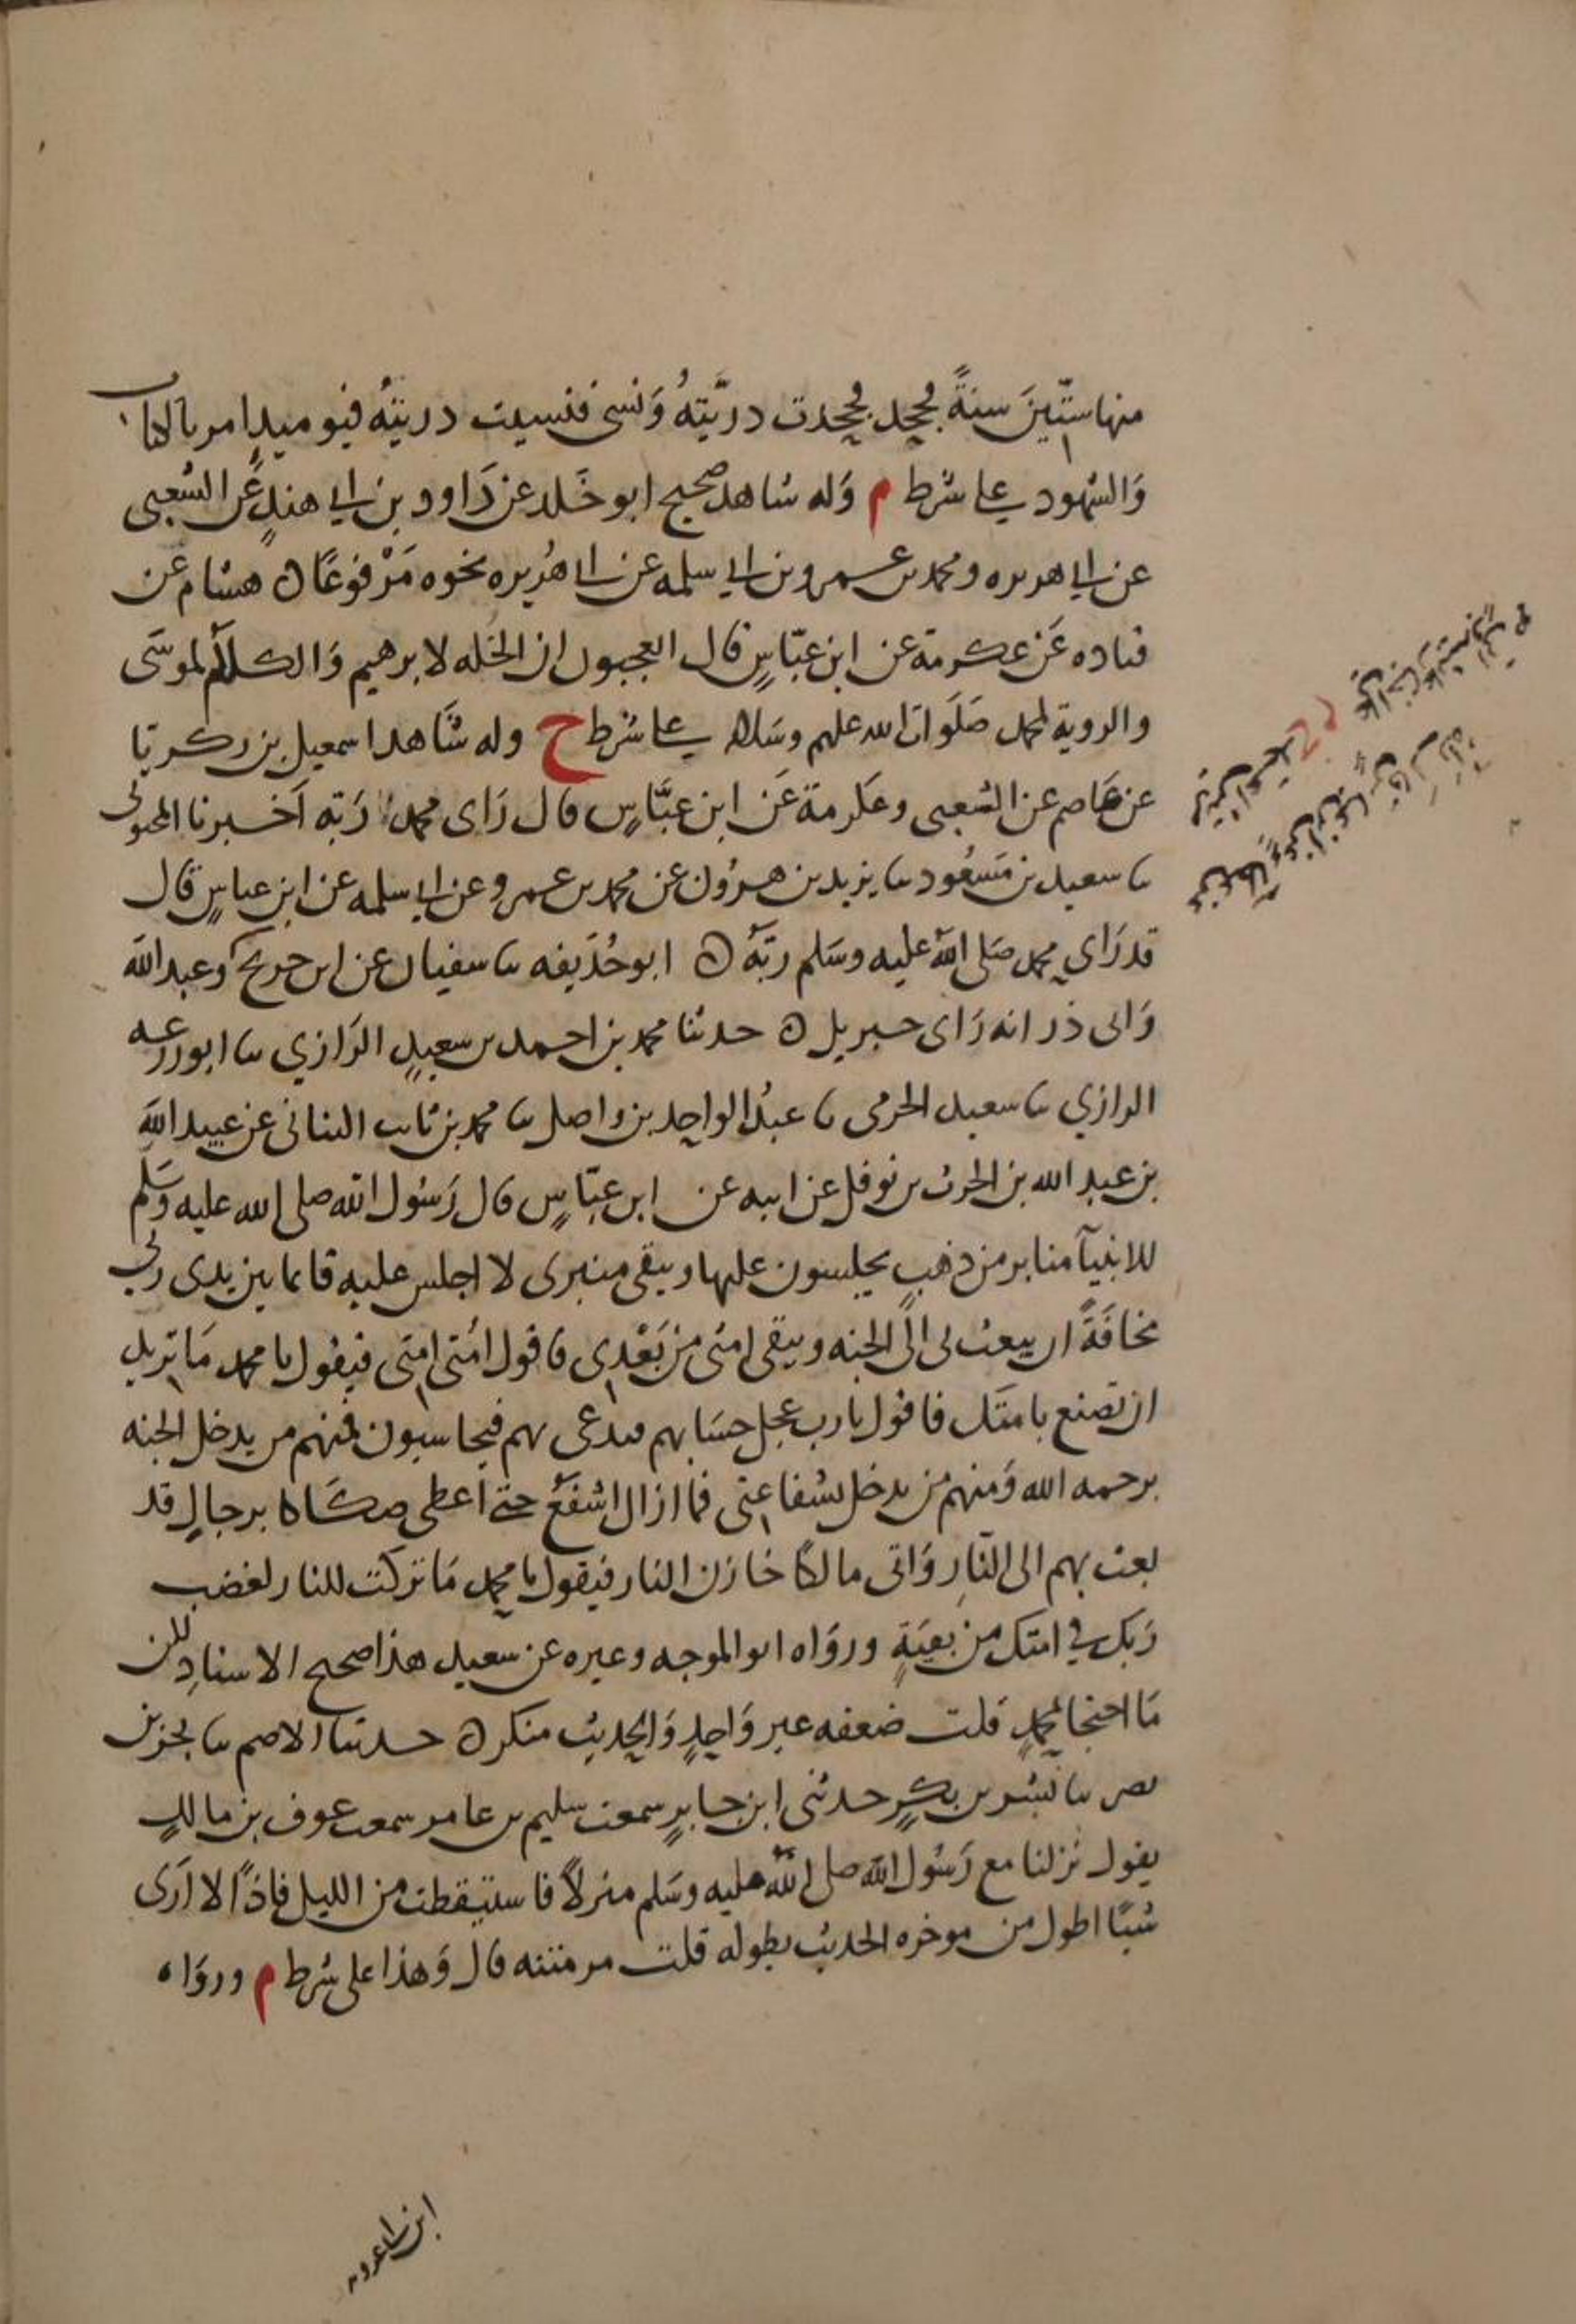 منها ستّينَ سنةً فجحد فجحدت درّيّتهُ وَنسى فنسيت دريته فيوميذٍ امر بالكتاب
وَالشهود على شرط م وَله شاهد صحيح ابو خَلد عن دَاوود بن ابي هندٍ عَن الشعبي
عن ابي هريره ومحمد بن عمرو بن ابي سلمه عن ابي هُريره نحوه مَرْفوعًا ن هشام عن
قتاده عَن عكرمة عن ابن عبّاسٍ قال العجبون ان الخله لابرهيم وَالكلام لموسَى
والروية لمحمد صَلَوات الله عليهم وسَلامه على شرط خ وله شَاهد اسمعيل بن زكريا
عن عَاصم عن الشعبي وعكرمة عَن ابن عبَّاسٍ قال رَاى محمدٌ رَبّه اَخبرنا المحبوبي
ثنا سعيد بن مَسعُود ثنا يزيد بن هرُون عن محمد بن عمرو عن ابي سلمه عن ابن عباسٍ قال
قد رَاي محمد صَلى اللهُ عليه وسَلم ربّهُ ن ابو حُذَيفه ثنا سفيان عن ابن جريج وعبد الله
وَابى ذر انه رَاى جبريل ن حدثنا محمد بن احمد بن سعيدٍ الرَازي ثنا ابو زرعه
الرازي ثنا سعيد الجرمى ثنا عبدُ الواحِد بن واصل ثنا محمد بن ثابت البنانى عن عبيد الله
بن عبد الله بن الحرث بن نوفل عن ابيه عن ابن عبّاسٍ قال رَسُول الله صلى الله عليه وَسَلّم
للانبيآ منابر من ذهبٍ يجلسون عليها ويبقى منبرى لا اجلس عليه قائما بين يدى ربي
مخافَةً ان يبعث لى الى الجنه ويبقى امتى من بَعْدِى فاقول امّتى امتى فيقول يا محمد مَا تريد
ان تصنع بامتَك فاقول يارب عجل حسَابهم فيدعى بهم فيحاسبون فمنهم من يدخل الجنه
برحمه الله وَمنهم من يدخل بشفاعتى فما ازال اشفعُ حتى اعطى صكَاكا برجالٍ قد
بعث بهم الى النّارِ وَاتى مالكًا خازن النار فيقول يا محمد مَا تركت للنار لغضب
رَبك في امتك من بقيَةٍ وروَاه ابو الموجه وغيره عن سعيد هذا صحيح الاسنادِ لكن
مَا احتجا بمحمدٍ قلت ضعفه غير وَاحِدٍ وَالحديث منكر ن حدثنا الاصم ثنا بحر بن
نصر ثنا بشر بن بكرٍ حدثنى ابن جابرٍ سمعت سليم بن عامر سمعت عوف بن مالكٍ
يقول نزلنا مع رَسُول الله صلى اللهُ عليه وسَلم منزلاً فاستيقظت من الليل فاذا لا ارَى
شيئًا اطول من موخره الحديث بطوله قلت مر متنه قال وَهذا على شرط م وروَاه